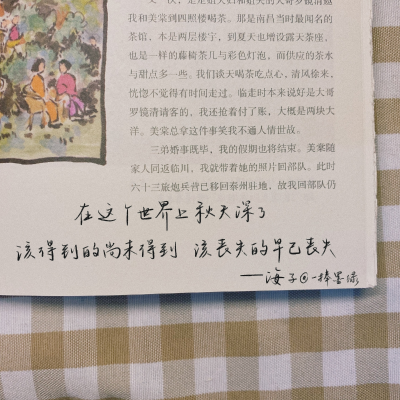 我和美棠到四照楼喝茶。那是南昌当时最闻名的
茶馆，本是两层楼宇，到夏天也增设露天茶座，
也是一样的藤椅茶几与彩色灯泡，而供应的茶水
与甜点多一些。我们谈天喝茶吃点心，清风徐来，
恍惚不觉得有时间走过。临走时本来说好是大哥
罗镜清请客的，我还抢着付了账，大概是两块大
洋。美棠总拿这件事笑我不通人情世故。
三弟婚事既毕，我的假期也将结束。美棠随
家人同返临川，我就带着她的照片回部队。此时
六十三旅炮兵营已移回泰州驻地，故我回部队仍
在这个世界上秋天深了
该得到的尚未得到 该丧失的早已丧失
——海子@一棒墨绿